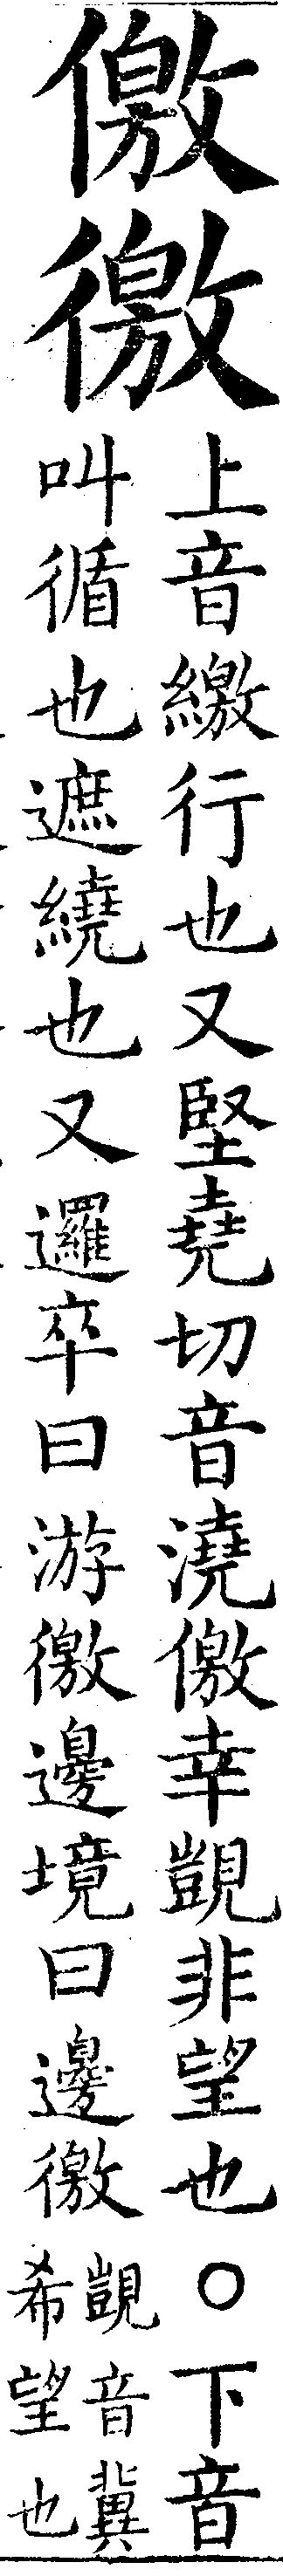 僥徼
上音繳行也又堅堯切音澆僥幸覬非望也○下音
叫循也遮繞也又邏卒曰游徼邊境曰邊徼
覬音冀
希望也